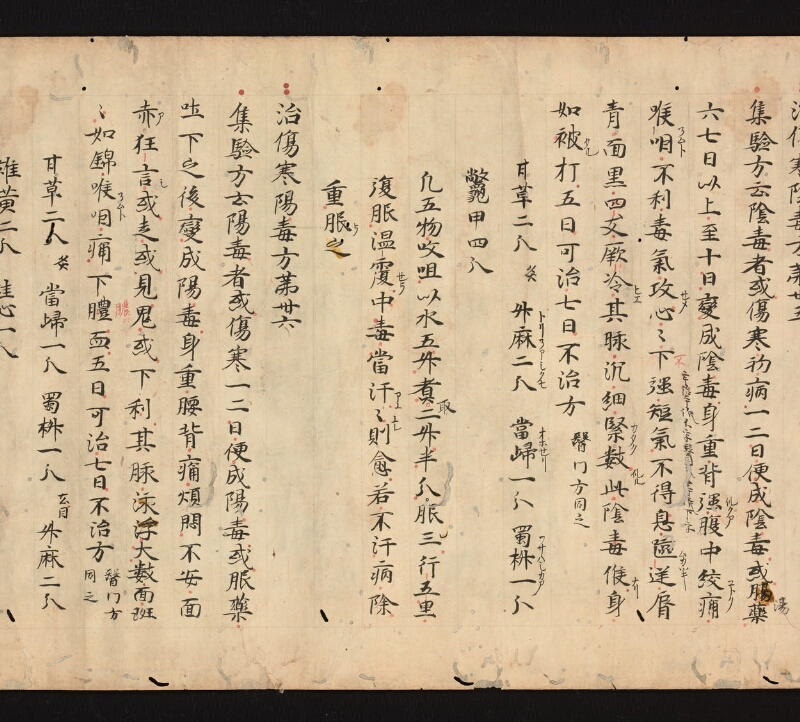 治傷寒陰毒方第卅五
集驗方云陰毒者或傷寒初病一二日便成陰毒或服藥
六七日以上至十日變成陰毒身重背强腹中絞痛
喉咽不利毒氣攻心〻下强短氣不得息嘔逆脣
青面黒四支厥冷其脉沉細緊數此陰毒候身
如被打五日可治七日不治方 醫門方同之
甘草二分 炙 升麻二分 當歸一分 蜀椒一分
鼈甲四分
凡五物㕮咀以水五升煮取二升半分服三行五里
復服温覆中毒當汗〻則愈若不汗病除
重服之
治傷寒陽毒方第卅六
集驗方云陽毒者或傷寒一二日便成陽毒或服藥
吐下之後變成陽毒身重腰背痛煩悶不安面
赤狂言或走或見鬼或下利其脉浮大數面斑
〻如錦喉咽痛下膿血五日可治七日不治方 醫門方同之
甘草二分 炙 當歸一分 蜀椒一分 升麻二分
雄黄二分 桂心一分